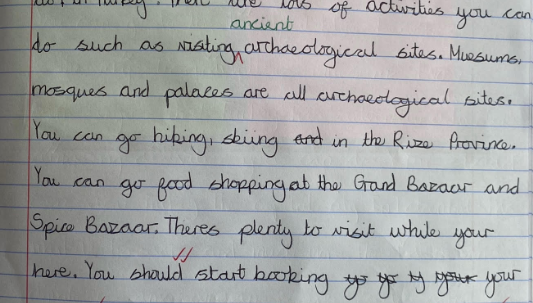 lots of activities you can
ancient
do such as visiting, archaeological sites. Muesums,
mosques and palaces are all archaeological sites.
You can go hiking, skiing and in the Rize Province.
You can go food shopping at the Grand Bazaar and
Spice Bazaar. Theres plenty to visit while your
here. You should start booking your